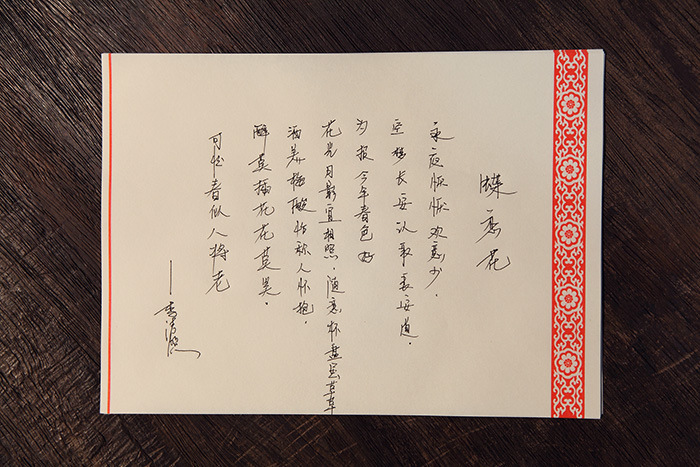 蝶恋花
永夜恹恹欢意少.
空梦长安认取长安道.
为报今年春色好
花光月影宜相照.随意杯盘虽草草
酒美梅酸恰称人怀抱.
醉莫插花花莫笑.
可怜春似人将老
——李清照